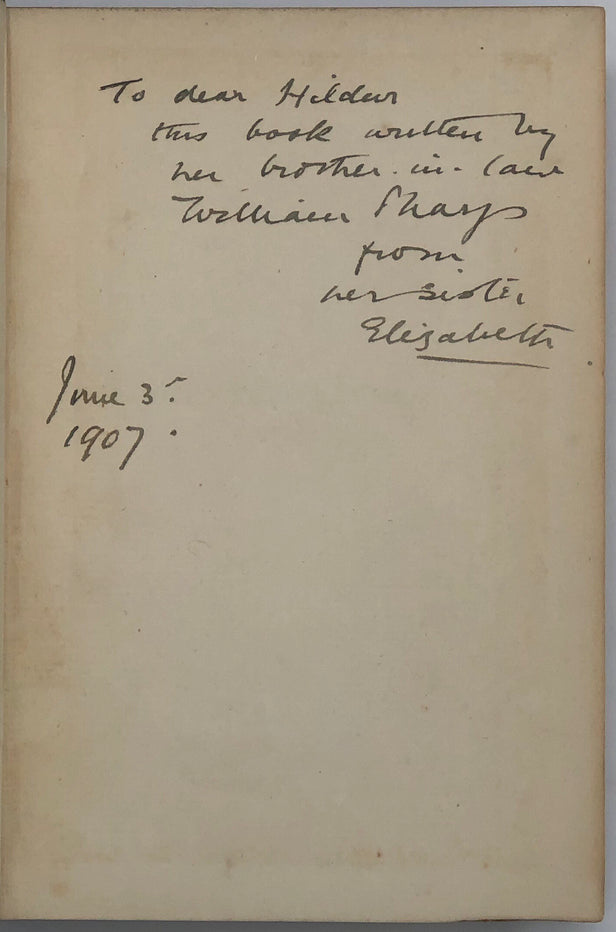 To dear Hildur
this book written by
her brother-in-law
William Sharp
from
her sister
Elizabeth
June 3.
1907.